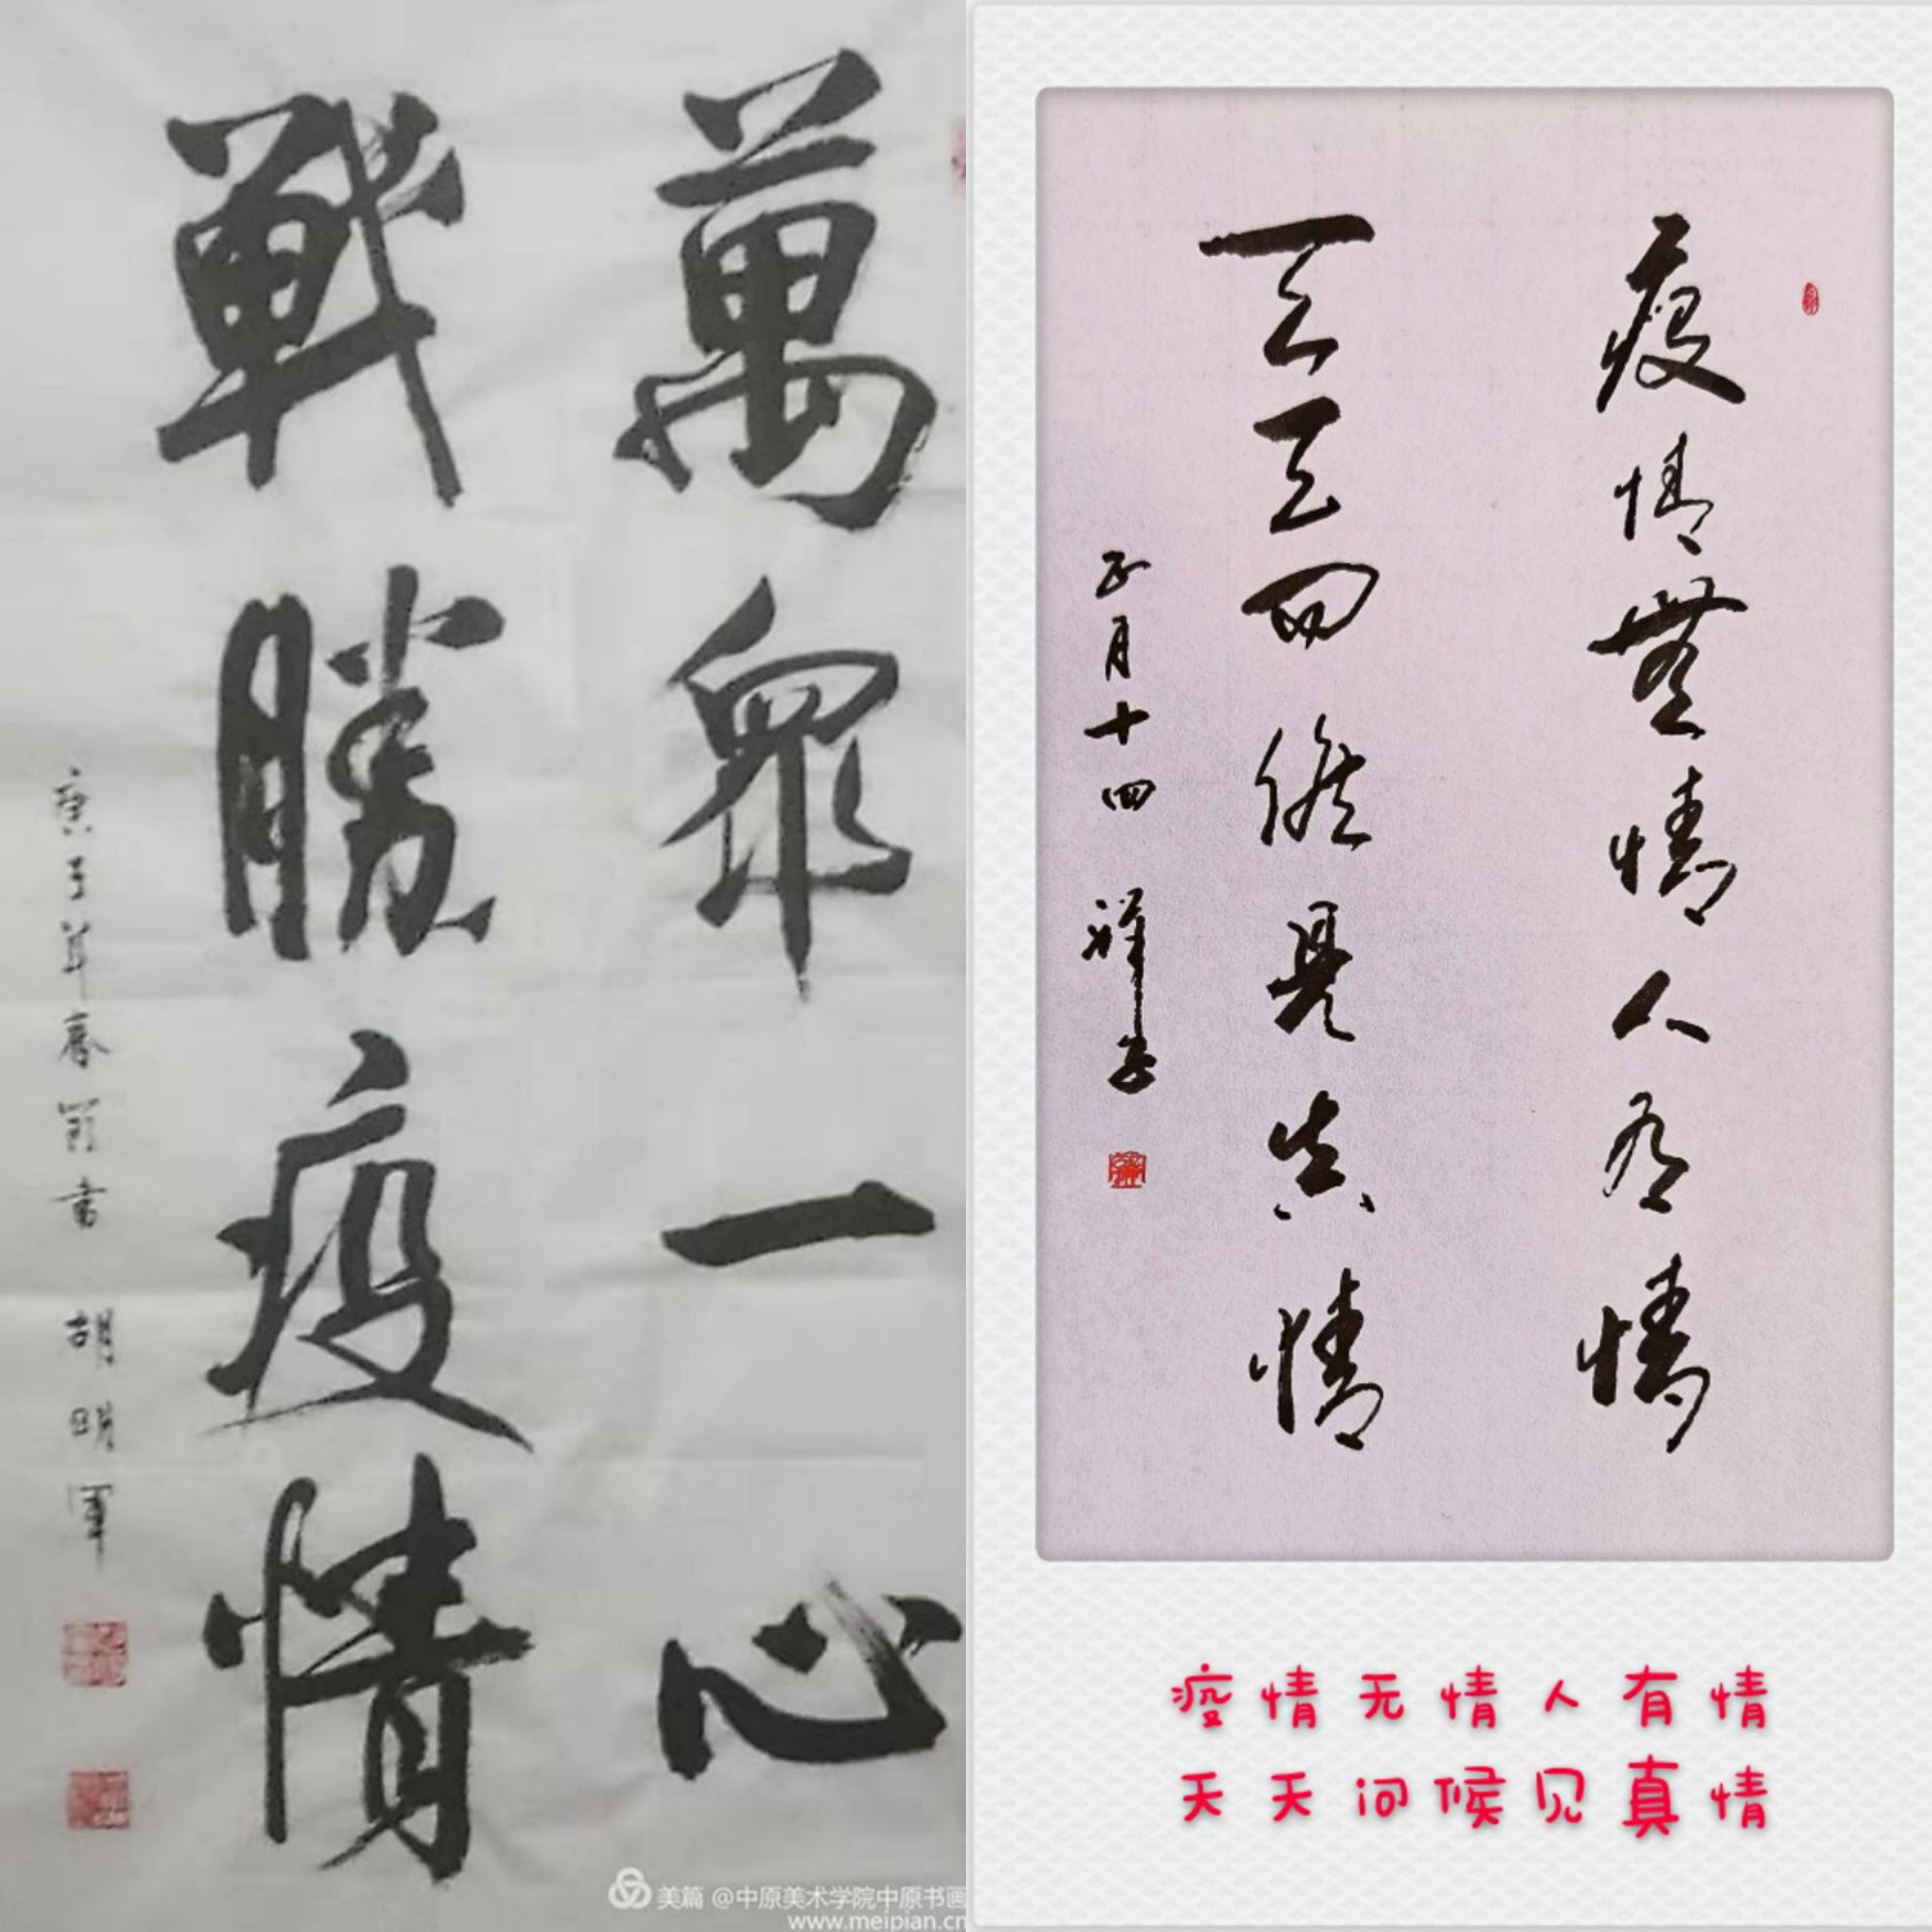 萬眾一心
戰勝疫情
庚子年春節書 胡明軍
美篇 @中原美术学院中原书画
www.meipian.cn
疫情無情人有情
天天问候見真情
正月十四 禪子
疫情无情人有情
天天问候见真情